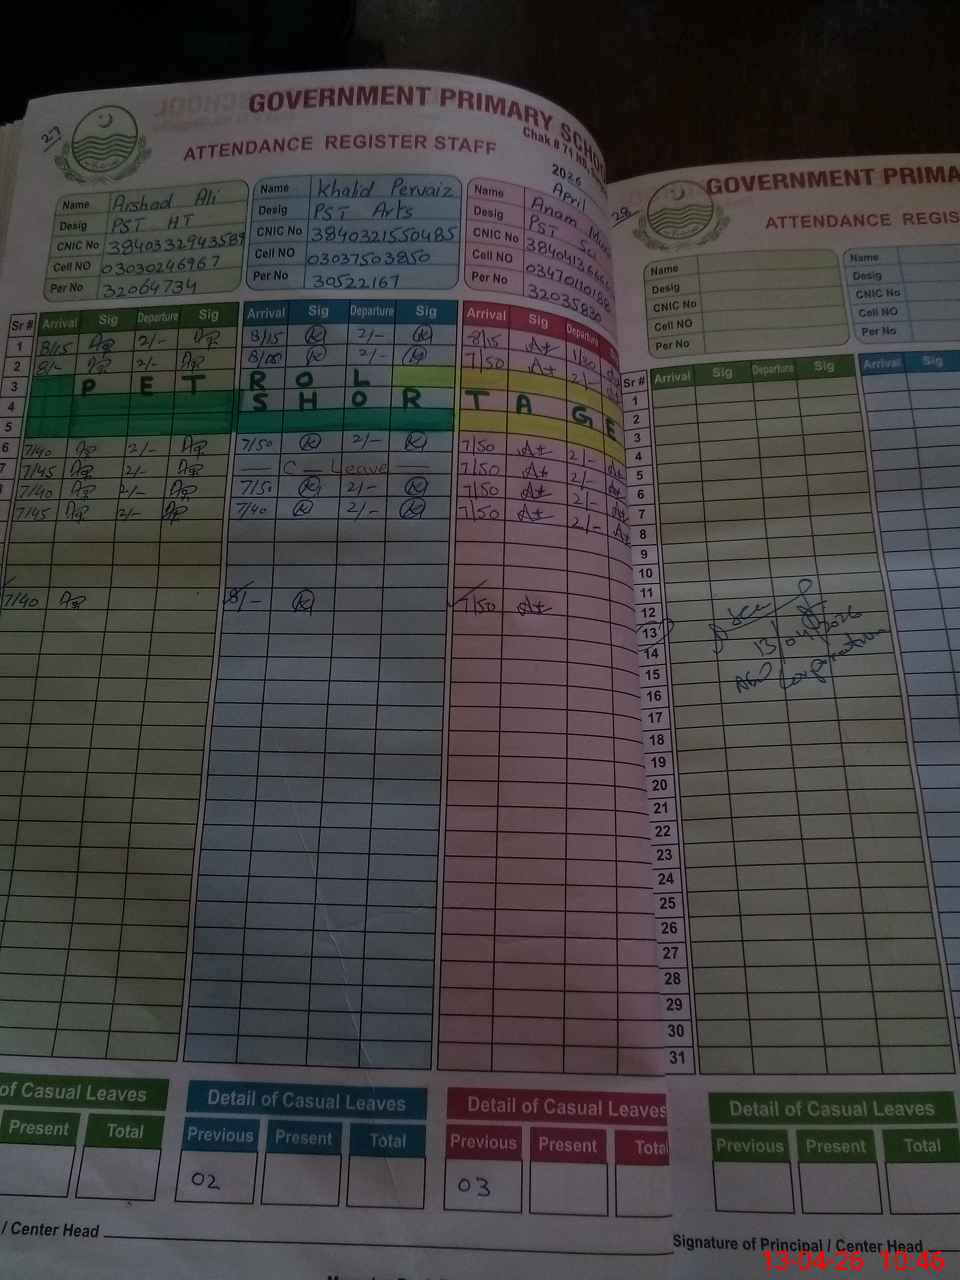 27
GOVERNMENT PRIMARY SCHOO
Chak # 71 NB
ATTENDANCE REGISTER STAFF
2026
April
Name Arshad Ali
Desig PST HT
CNIC No 3840332943589
Cell NO 03030246967
Per No 32064734
Name Khalid Pervaiz
Desig PST Arts
CNIC No 3840321550485
Cell NO 03037503850
Per No 30522167
Name Anam
Desig PST
CNIC No
Cell NO 0347011018
Per No 32035830
Sr # Arrival Sig Departure Sig Arrival Sig Departure Sig Arrival Sig Departure
1 8/15 2/- 8/15 2/- 8/15 1/30
2 8/- 2/- 2/- 7/50 2/-
3 PET ROL
4 SHOR TAGE
5
6 7/40 2/- 7/50 2/- 7/50 2/-
7 7/45 2/- C - Leave 7/50 2/-
7/40 2/- 7/50 2/- 7/50 2/-
7/45 2/- 7/40 2/- 7/50 2/-
7/40 8/- 7/50
of Casual Leaves
Present Total
Detail of Casual Leaves
Previous Present Total
02
Detail of Casual Leaves
Previous Present Tota
03
/ Center Head
28
GOVERNMENT PRIMA
ATTENDANCE REGIS
Name
Desig
CNIC No
Cell NO
Per No
Name
Desig
CNIC No
Cell NO
Per No
Sr # Arrival Sig Departure Sig Arrival Sig
1
2
3
4
5
6
7
8
9
10
11
12
13
14
15
16
17
18
19
20
21
22
23
24
25
26
27
28
29
30
31
13/04/2026
Detail of Casual Leaves
Previous Present Total
Signature of Principal / Center Head
13-04-26 10:46